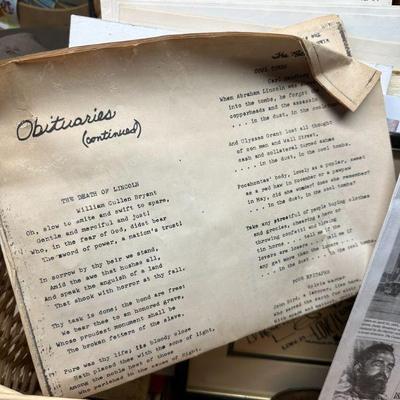 Obituaries
(continued)
THE DEATH OF LINCOLN
William Cullen Bryant
Oh, slow to smite and swift to spare,
Gentle and merciful and just!
Who, in the fear of God, didst bear
The sword of power, a nation's trust!
In sorrow by thy beir we stand,
Amid the awe that hushes all,
And speak the anguish of a land
That shook with horror at thy fall.
Thy task is done; the bond are free:
We bear thee to an honored grave,
Whose proudest monument shall be
The broken fetters of the slave.
Pure was thy life; its bloody close
Hath placed thee with the sons of light,
Among the noble host of those
Who perished in the cause of Right.
The
COOL TOMBS
Carl
When Abraham Lincoln was
into the tombs, he forgot
copperheads and the assassin
. . . . in the dust, in the cool
And Ulysses Grant lost all thought
of con men and Wall Street,
cash and collateral turned ashes
. . . . in the dust, in the cool tombs.
Pocahontas' body, lovely as a poplar, sweet
as a red haw in november or a pawpaw
in May, did she wonder? does she remember?
. . . . in the dust, in the cool tombs?
Take any streetful of people buying clothes
and grocies, cheering a hero or
throwing confetti and blowing
tin horns . . . tell me if the
lovers are losers . . . tell me if
and get more than the lovers
. . . in the dust . . . in the cool tombs.
FOUR EPITAPHS
Sylvia
John Bird, a
who served the earth for